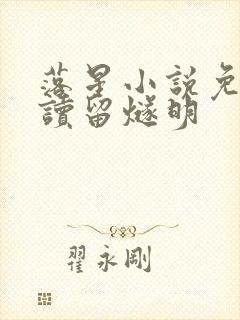 落星小説免
讀留燧明
翟永剛